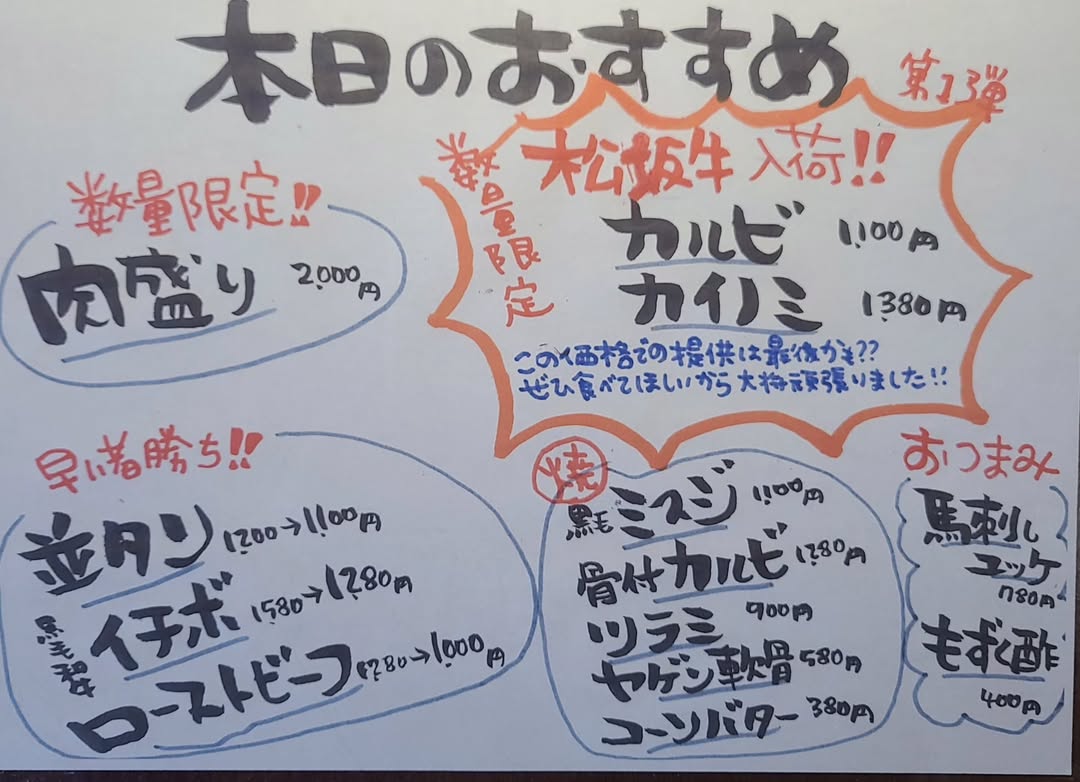 本日のおすすめ
第2弾
数量限定!!
肉盛り 2,000円
数量限定
松坂牛 入荷!!
カルビ 1,100円
カイノミ 1,380円
この価格での提供は最後かも??
ぜひ食べてほしいから大将頑張りました!!
早い者勝ち!!
並タン 1,200→1,100円
黒毛和牛
イチボ 1,580→1,280円
ローストビーフ 1,280→1,000円
焼
黒毛ミスジ 1,100円
骨付カルビ 1,280円
ツラミ 900円
ヤゲン軟骨 580円
コーンバター 380円
おつまみ
馬刺し
ユッケ
780円
もずく酢
400円